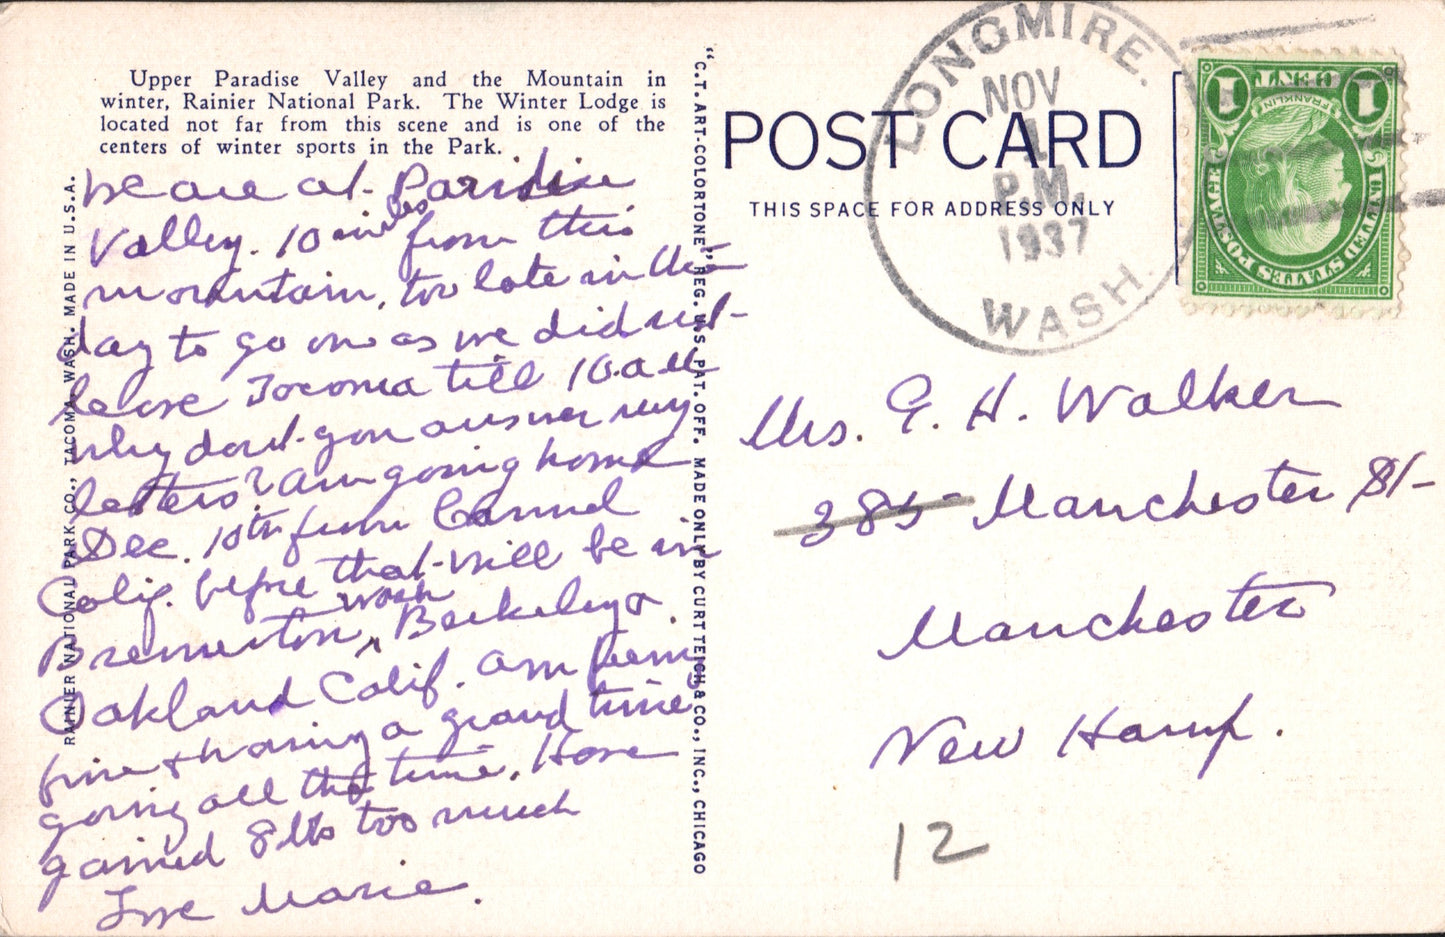 Upper Paradise Valley and the Mountain in
winter, Rainier National Park. The Winter Lodge is
located not far from this scene and is one of the
centers of winter sports in the Park.
We are at Paridise
Valley. 10 miles from this
mountain, too late in the
day to go on as we did not
leave Tacoma till 10. a.m.
Why dont you answer my
letters? Am going home
Dec. 10th from Carmel
Calif. before that will be in
Bremerton, Wash Berkeley &
Oakland Calif. am feeling
fine & having a grand time
going all the time. Have
gained 8 lbs too much
Love Marie.
RAINIER NATIONAL PARK CO., TACOMA, WASH. MADE IN U.S.A.
"C.T. ART-COLORTONE" REG. U.S. PAT. OFF. MADE ONLY BY CURT TEICH & CO., INC., CHICAGO
POST CARD
THIS SPACE FOR ADDRESS ONLY
LONGMIRE.
NOV
1
P.M.
1937
WASH.
UNITED STATES POSTAGE
FRANKLIN
1 CENT 1
Mrs. G. H. Walker
385 Manchester St-
Manchester
New Hamp.
12